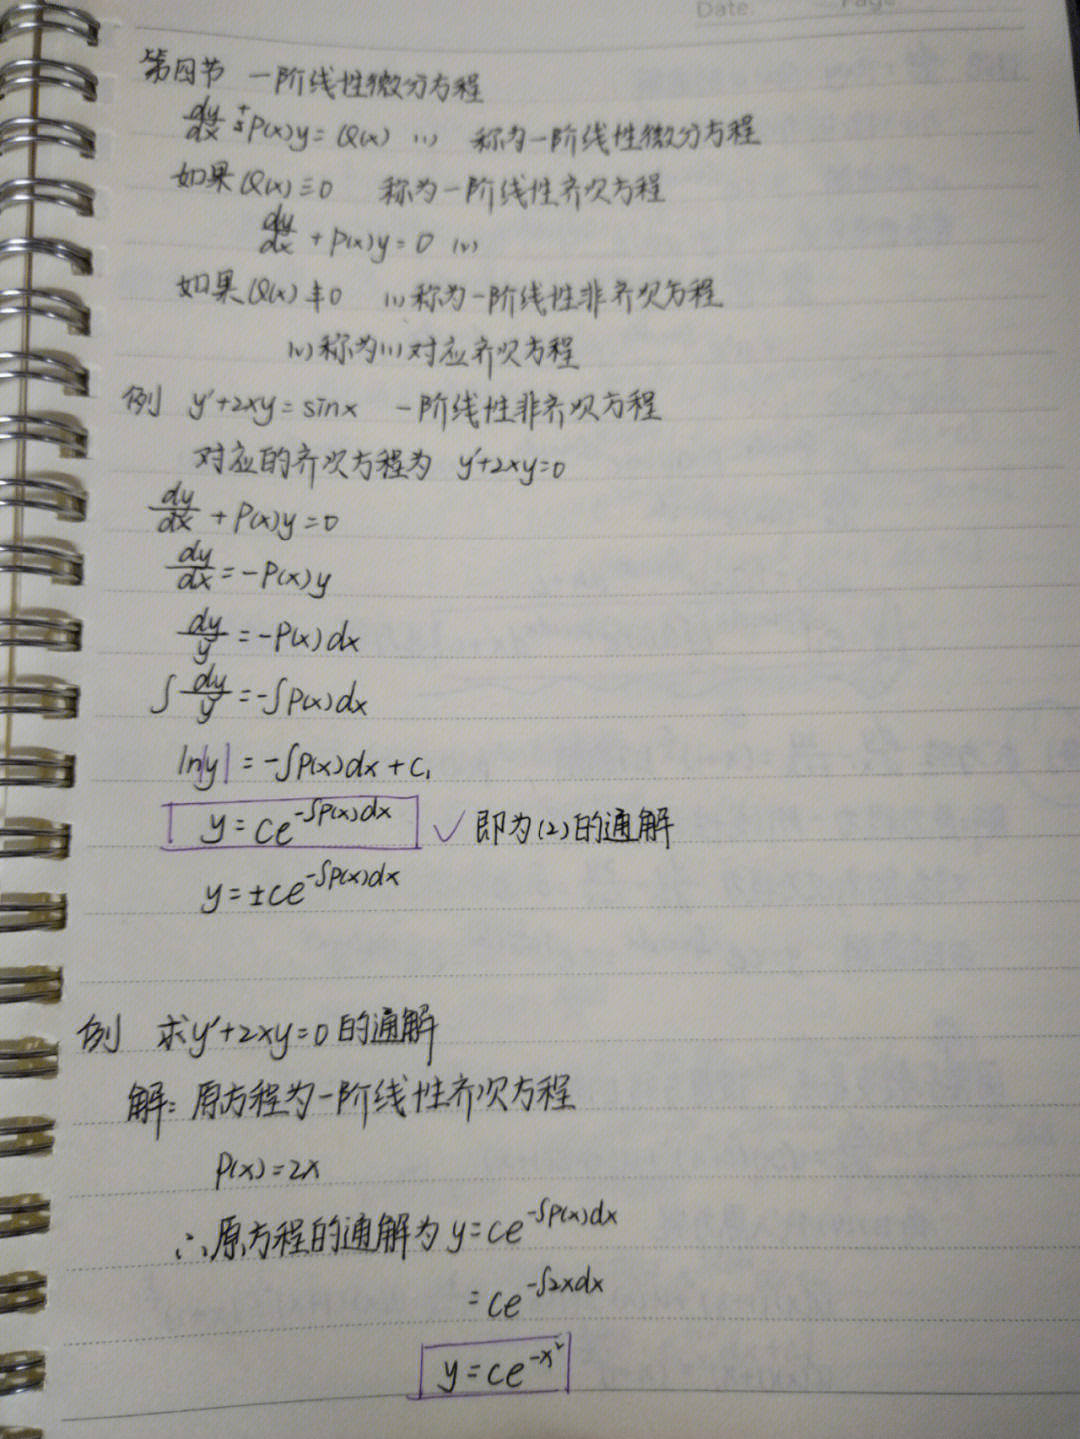 Date. Page
第四节 一阶线性微分方程
dy/dx + P(x)y = Q(x) (1) 称为一阶线性微分方程
如果Q(x)≡0 称为一阶线性齐次方程
dy/dx + P(x)y = 0 (2)
如果Q(x)≢0 (1)称为一阶线性非齐次方程
(2)称为(1)对应齐次方程
例 y'+2xy=sinx 一阶线性非齐次方程
对应的齐次方程为 y'+2xy=0
dy/dx + P(x)y=0
dy/dx = -P(x)y
dy/y = -P(x)dx
∫dy/y = -∫P(x)dx
ln|y| = -∫P(x)dx + C₁
y = ce^(-∫P(x)dx) ✓ 即为(2)的通解
y = ±ce^(-∫P(x)dx)
例 求y'+2xy=0的通解
解: 原方程为一阶线性齐次方程
P(x)=2x
∴原方程的通解为 y=ce^(-∫P(x)dx)
=ce^(-∫2xdx)
y=ce^(-x²)